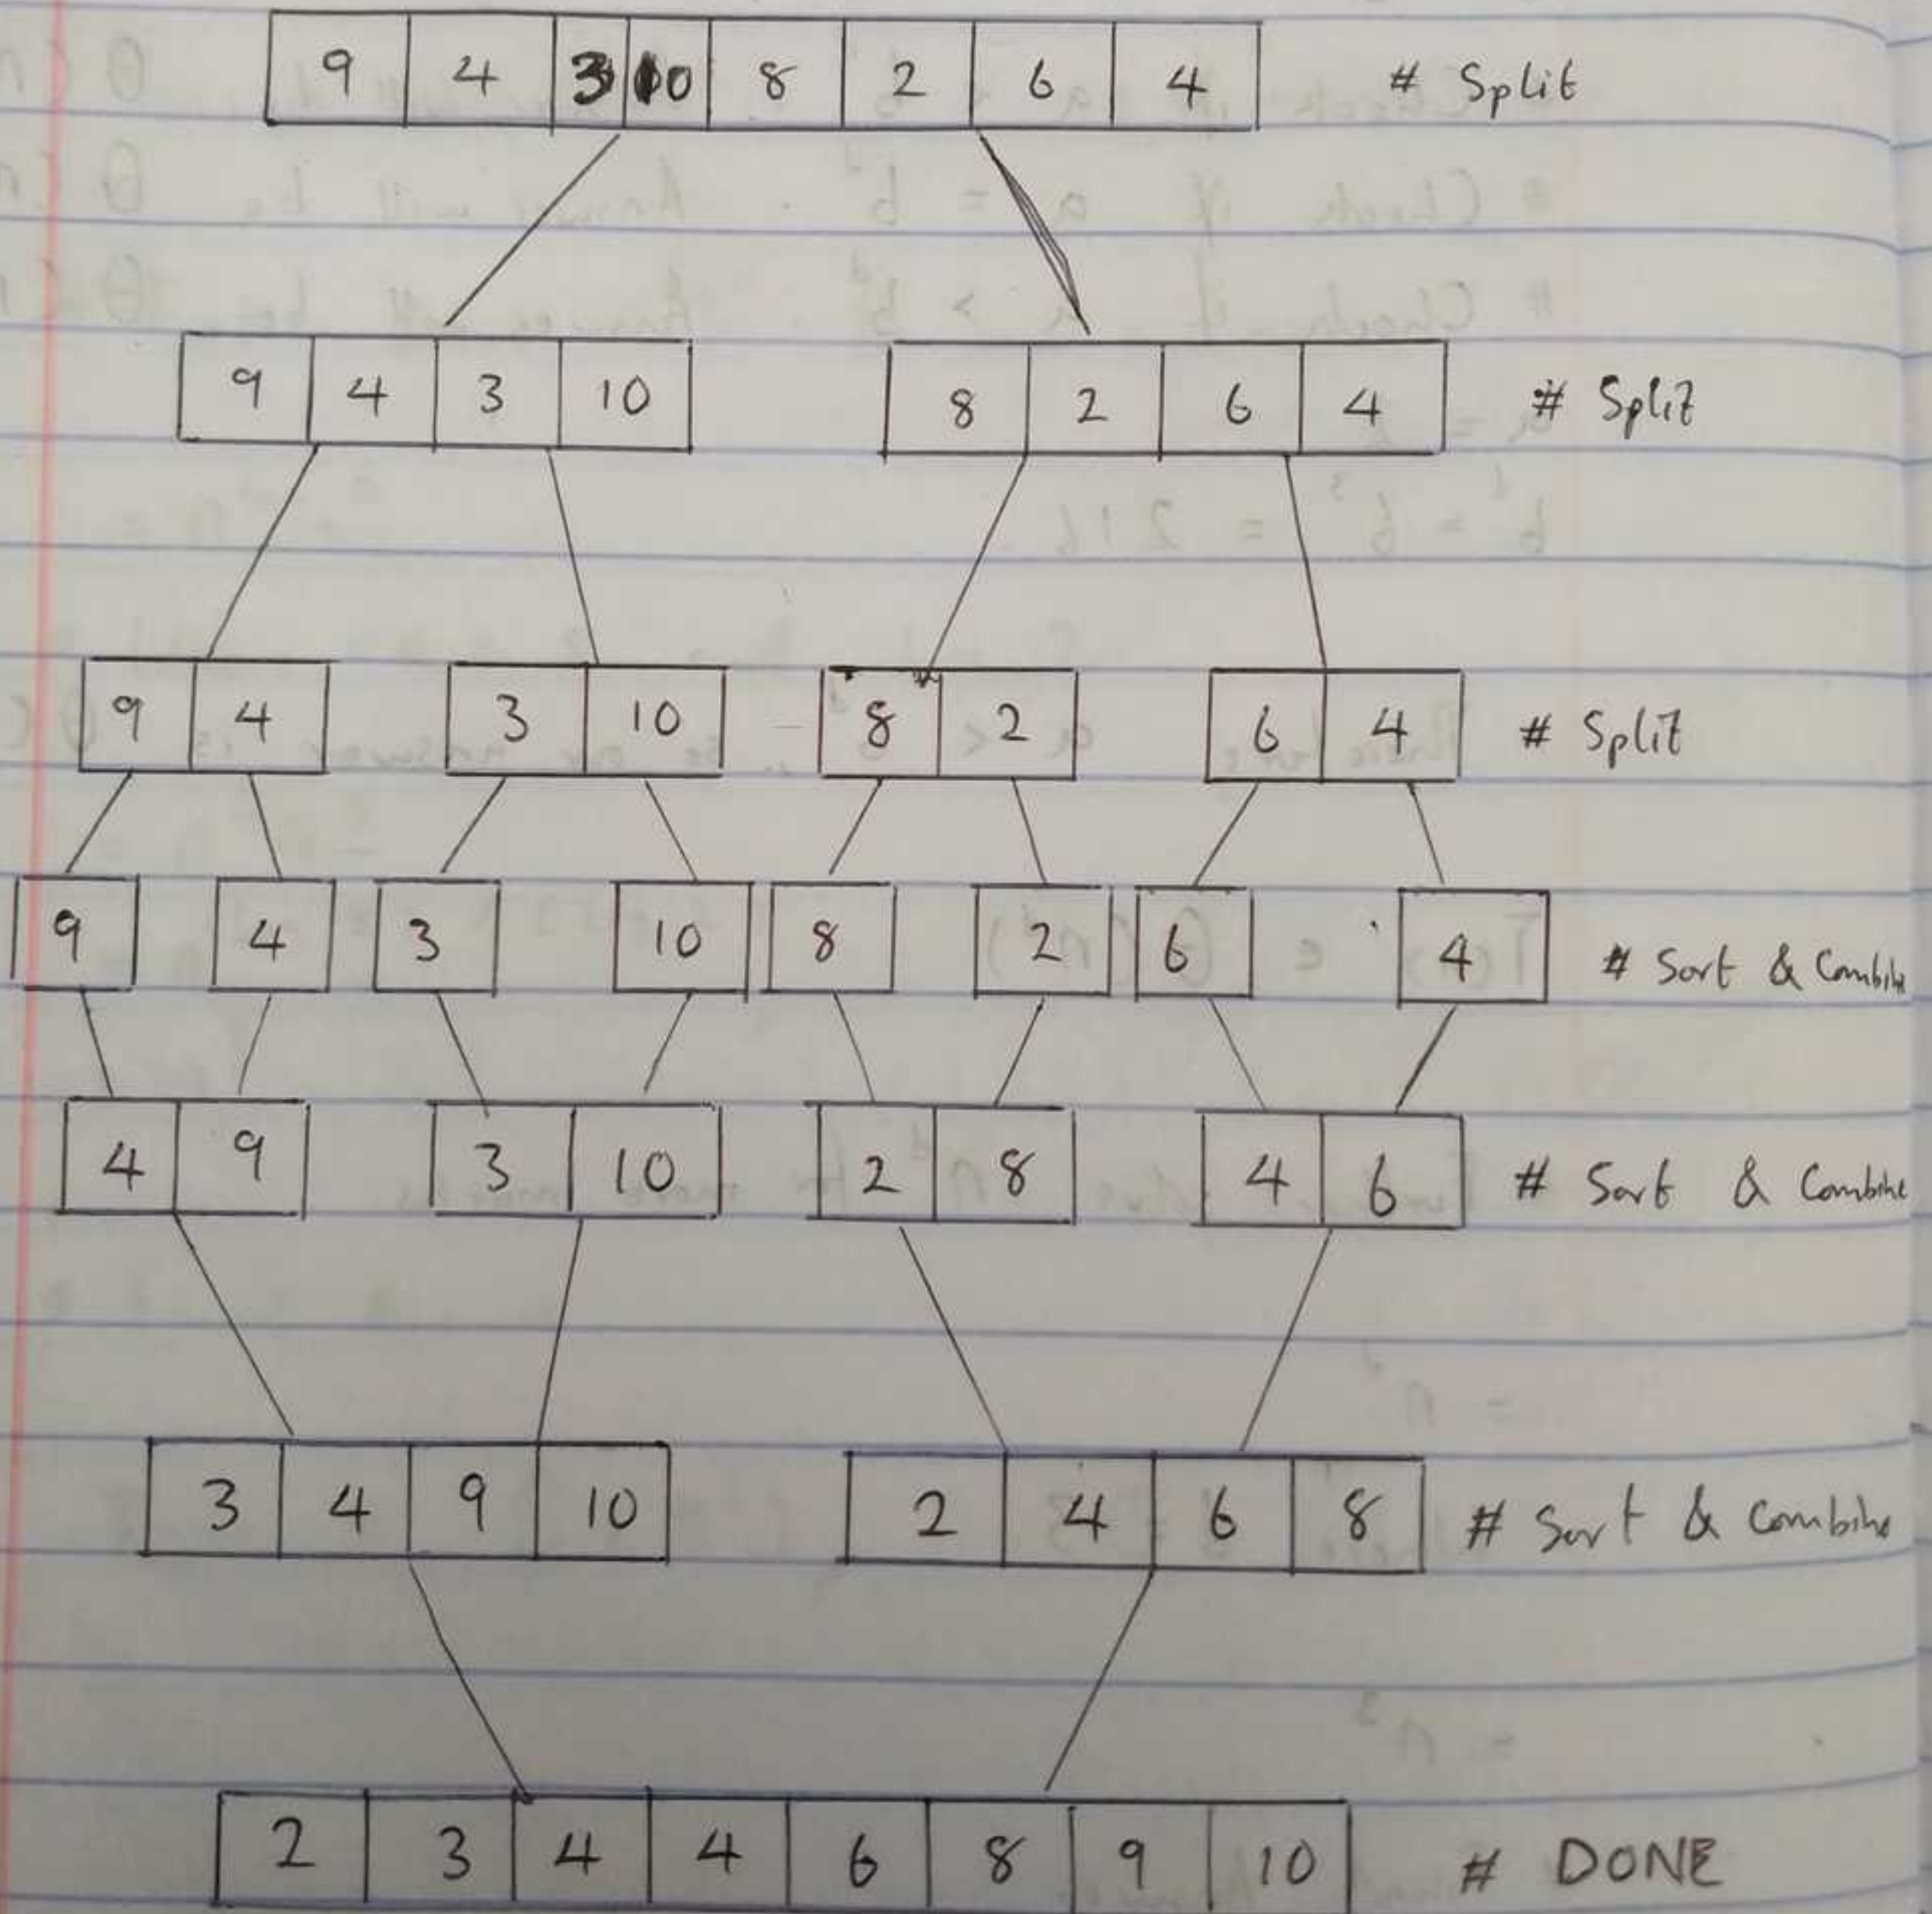 9 4 3 10 8 2 6 4 # Split
9 4 3 10 8 2 6 4 # Split
9 4 3 10 8 2 6 4 # Split
9 4 3 10 8 2 6 4 # Sort & Combine
4 9 3 10 2 8 4 6 # Sort & Combine
3 4 9 10 2 4 6 8 # Sort & Combine
2 3 4 4 6 8 9 10 # DONE